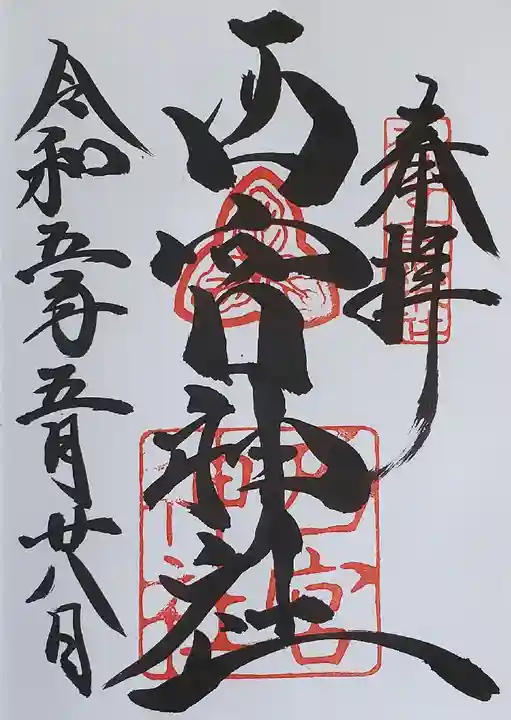 奉拝
西宮神社
令和五年五月廿八日